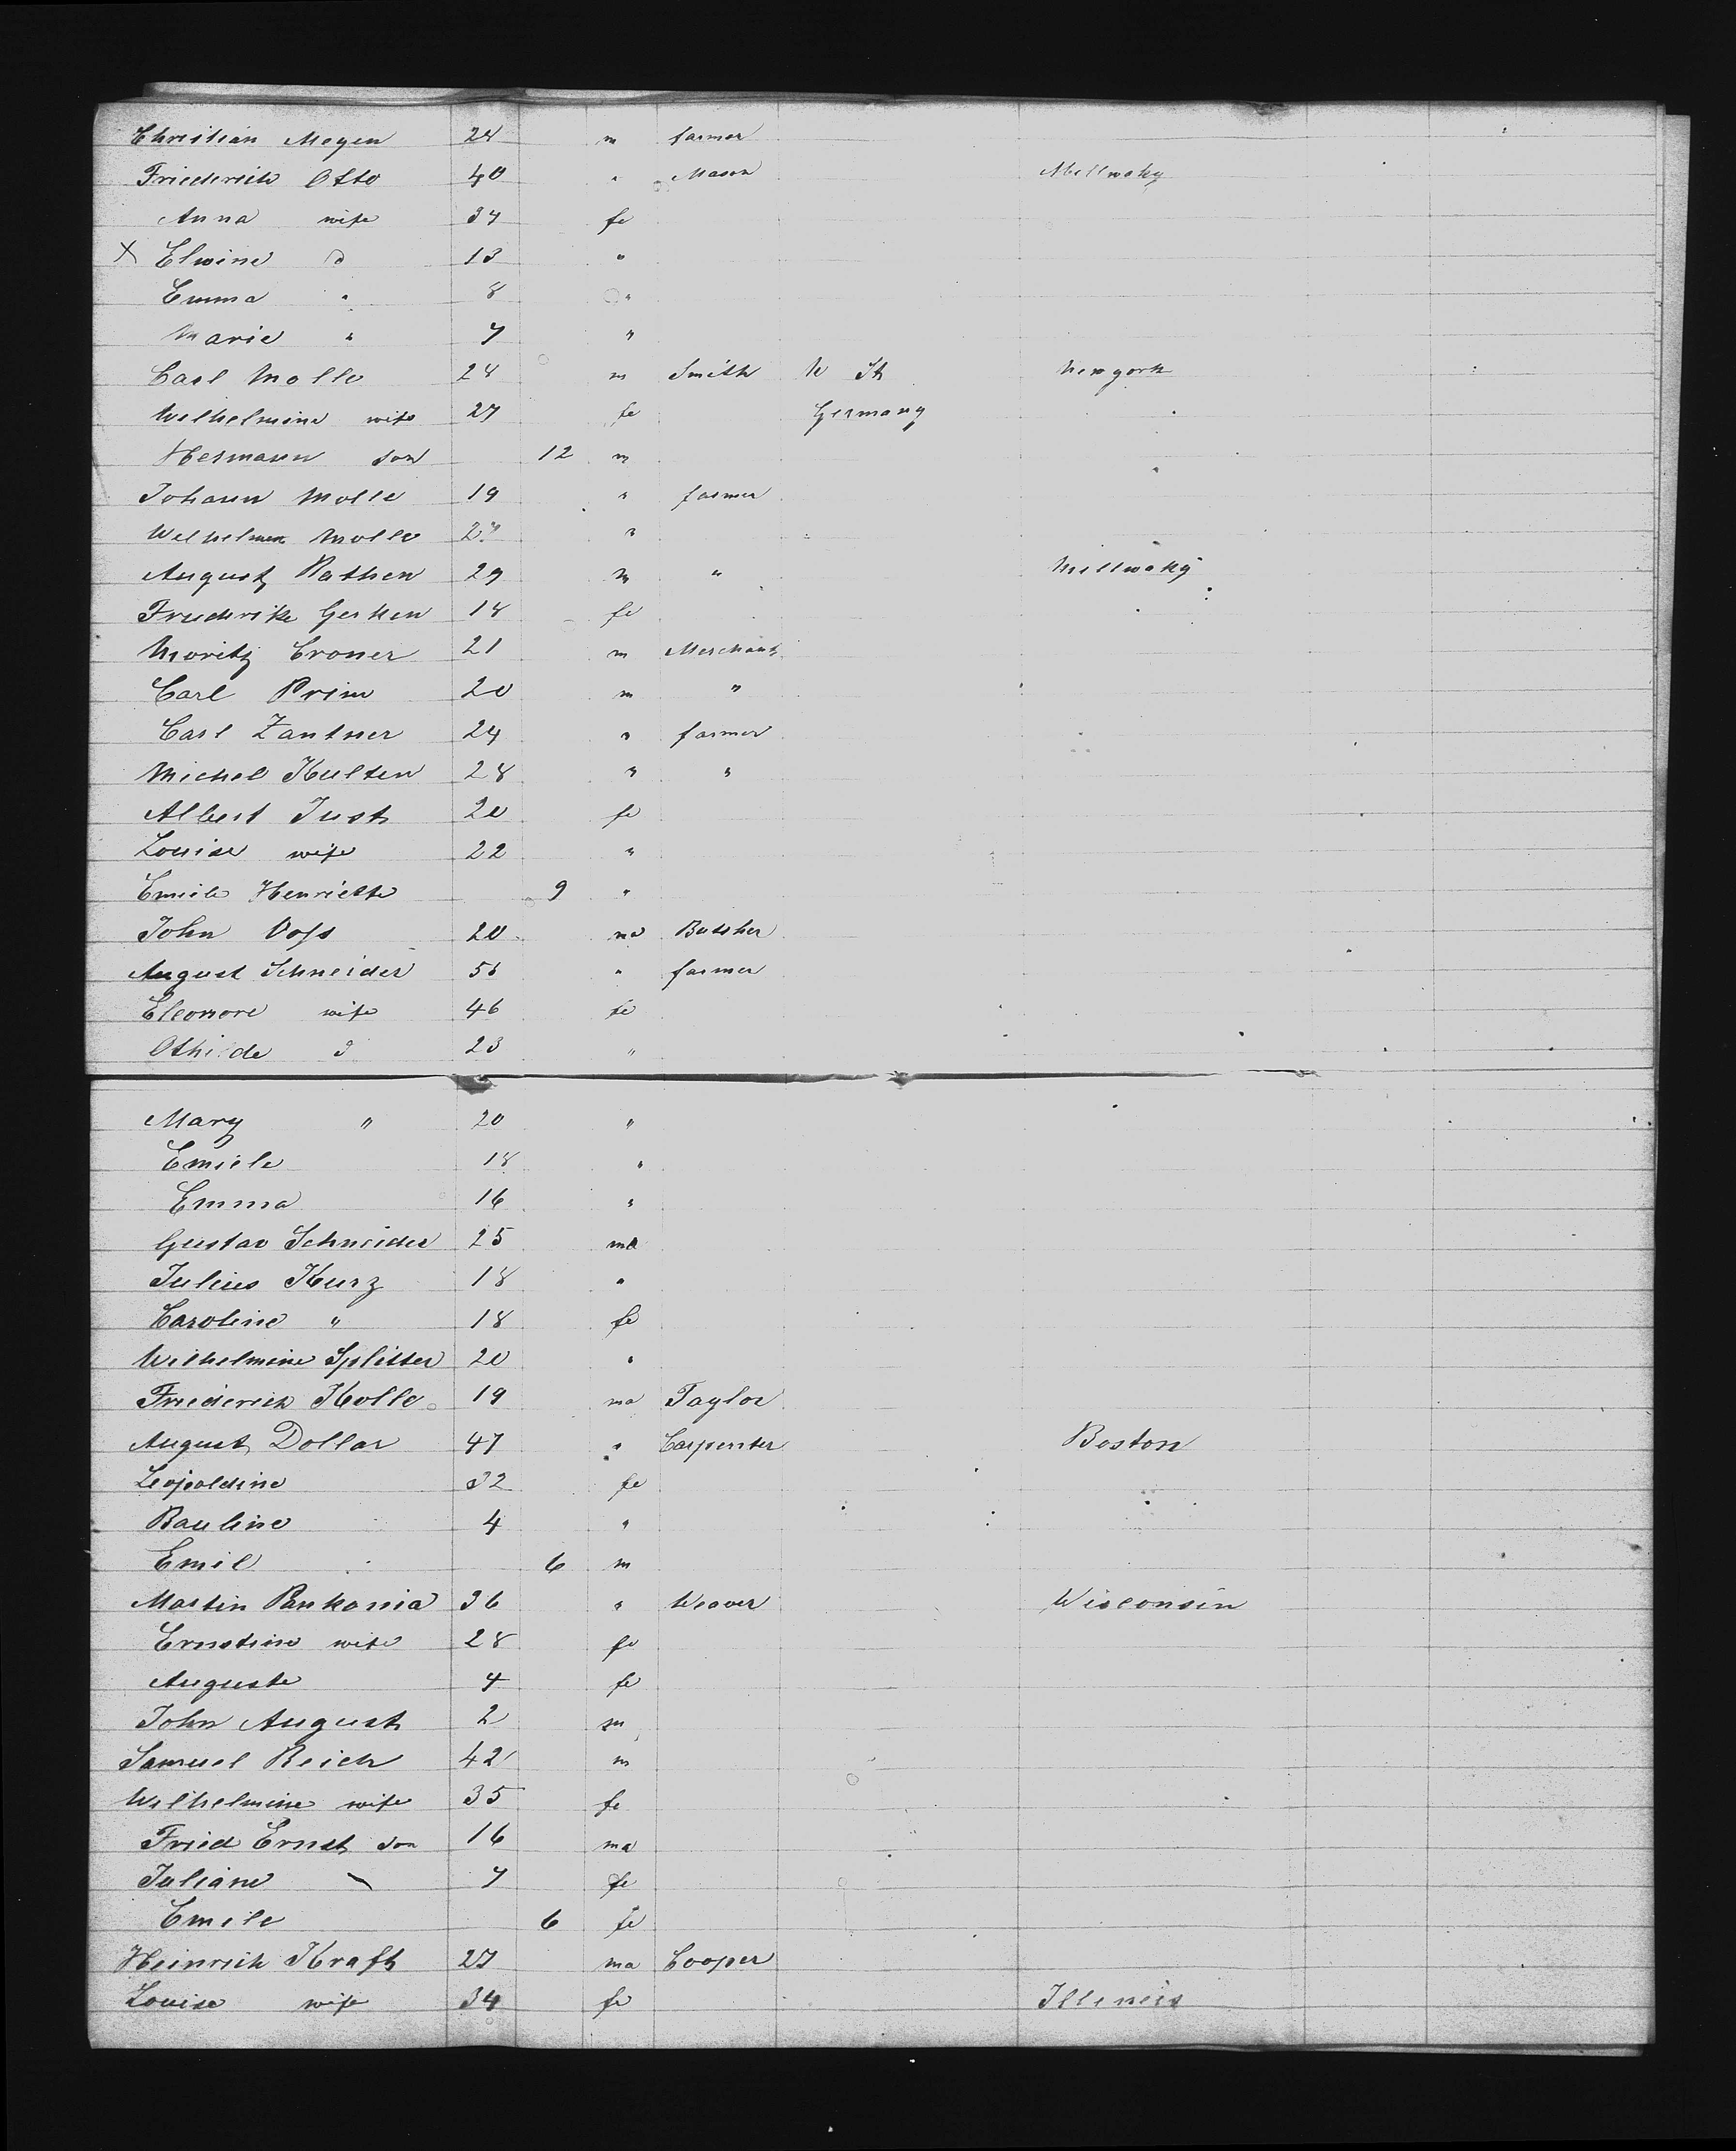 Christian Meyen 24 m farmer
Friederich Otto 40 " Mason Millwaky
Anna wife 34 fe
X Elwine d 13 "
Emma " 8 "
Marie " 7 "
Carl Molle 28 m Smith U St Newyork
Wilhelmine wife 27 fe Germany
Hermann son 12 m
Johann Molle 19 " farmer
Molle "
August Rathen 29 m " Millwaky
Friederike Gerken 18 fe
Moritz Croner 21 m Merchant
Carl Prim 20 m "
Carl Zantner 24 " farmer
Michel Kulten 28 " "
Albert Just 20 fe
Louise wife 22 "
Emile Henriette 9 "
John Voss 20 ma Butsher
August Schneider 56 " farmer
Eleonore wife 46 fe
Othilde d 23 "
Mary " 20 "
Emiele 18 "
Emma 16 "
Gustav Schneider 25 ma
Julius Kurz 18 "
Caroline " 18 fe
Wilhelmine Splitter 20 "
Friederich Kolle 19 ma Taylor
August Dollar 47 " Carpenter Boston
Leopoldine 32 fe
Pauline 4 "
Emil 6 m
Martin Pankonia 36 " Weaver Wisconsin
Ernstine wife 28 fe
Auguste 4 fe
John August 2 m
Samuel Reich 42 m
Wilhelmine wife 35 fe
Fried Ernst son 16 ma
Juliane 7 fe
Emile 6 fe
Heinrich Kraft 27 ma Cooper
Louise wife 34 fe Illineis